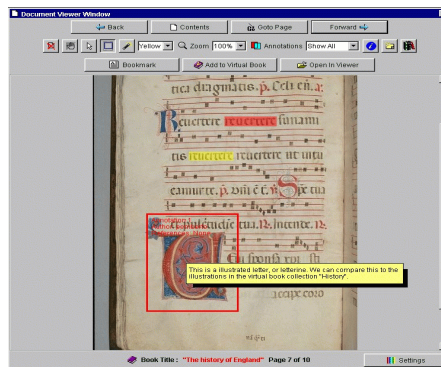 Document Viewer Window
Back Contents Goto Page Forward
Yellow Zoom 100% Annotations Show All
Bookmark Add to Virtual Book Open In Viewer
tica diagmatis. p. Celi en.
Reuertere reuertere sunami
tis reuertere reuertere ut intu
eamur te. p.
tua.
This is a illustrated letter, or letterine. We can compare this to the
illustrations in the virtual book collection "History".
Book Title : "The history of England" Page 7 of 10
Settings